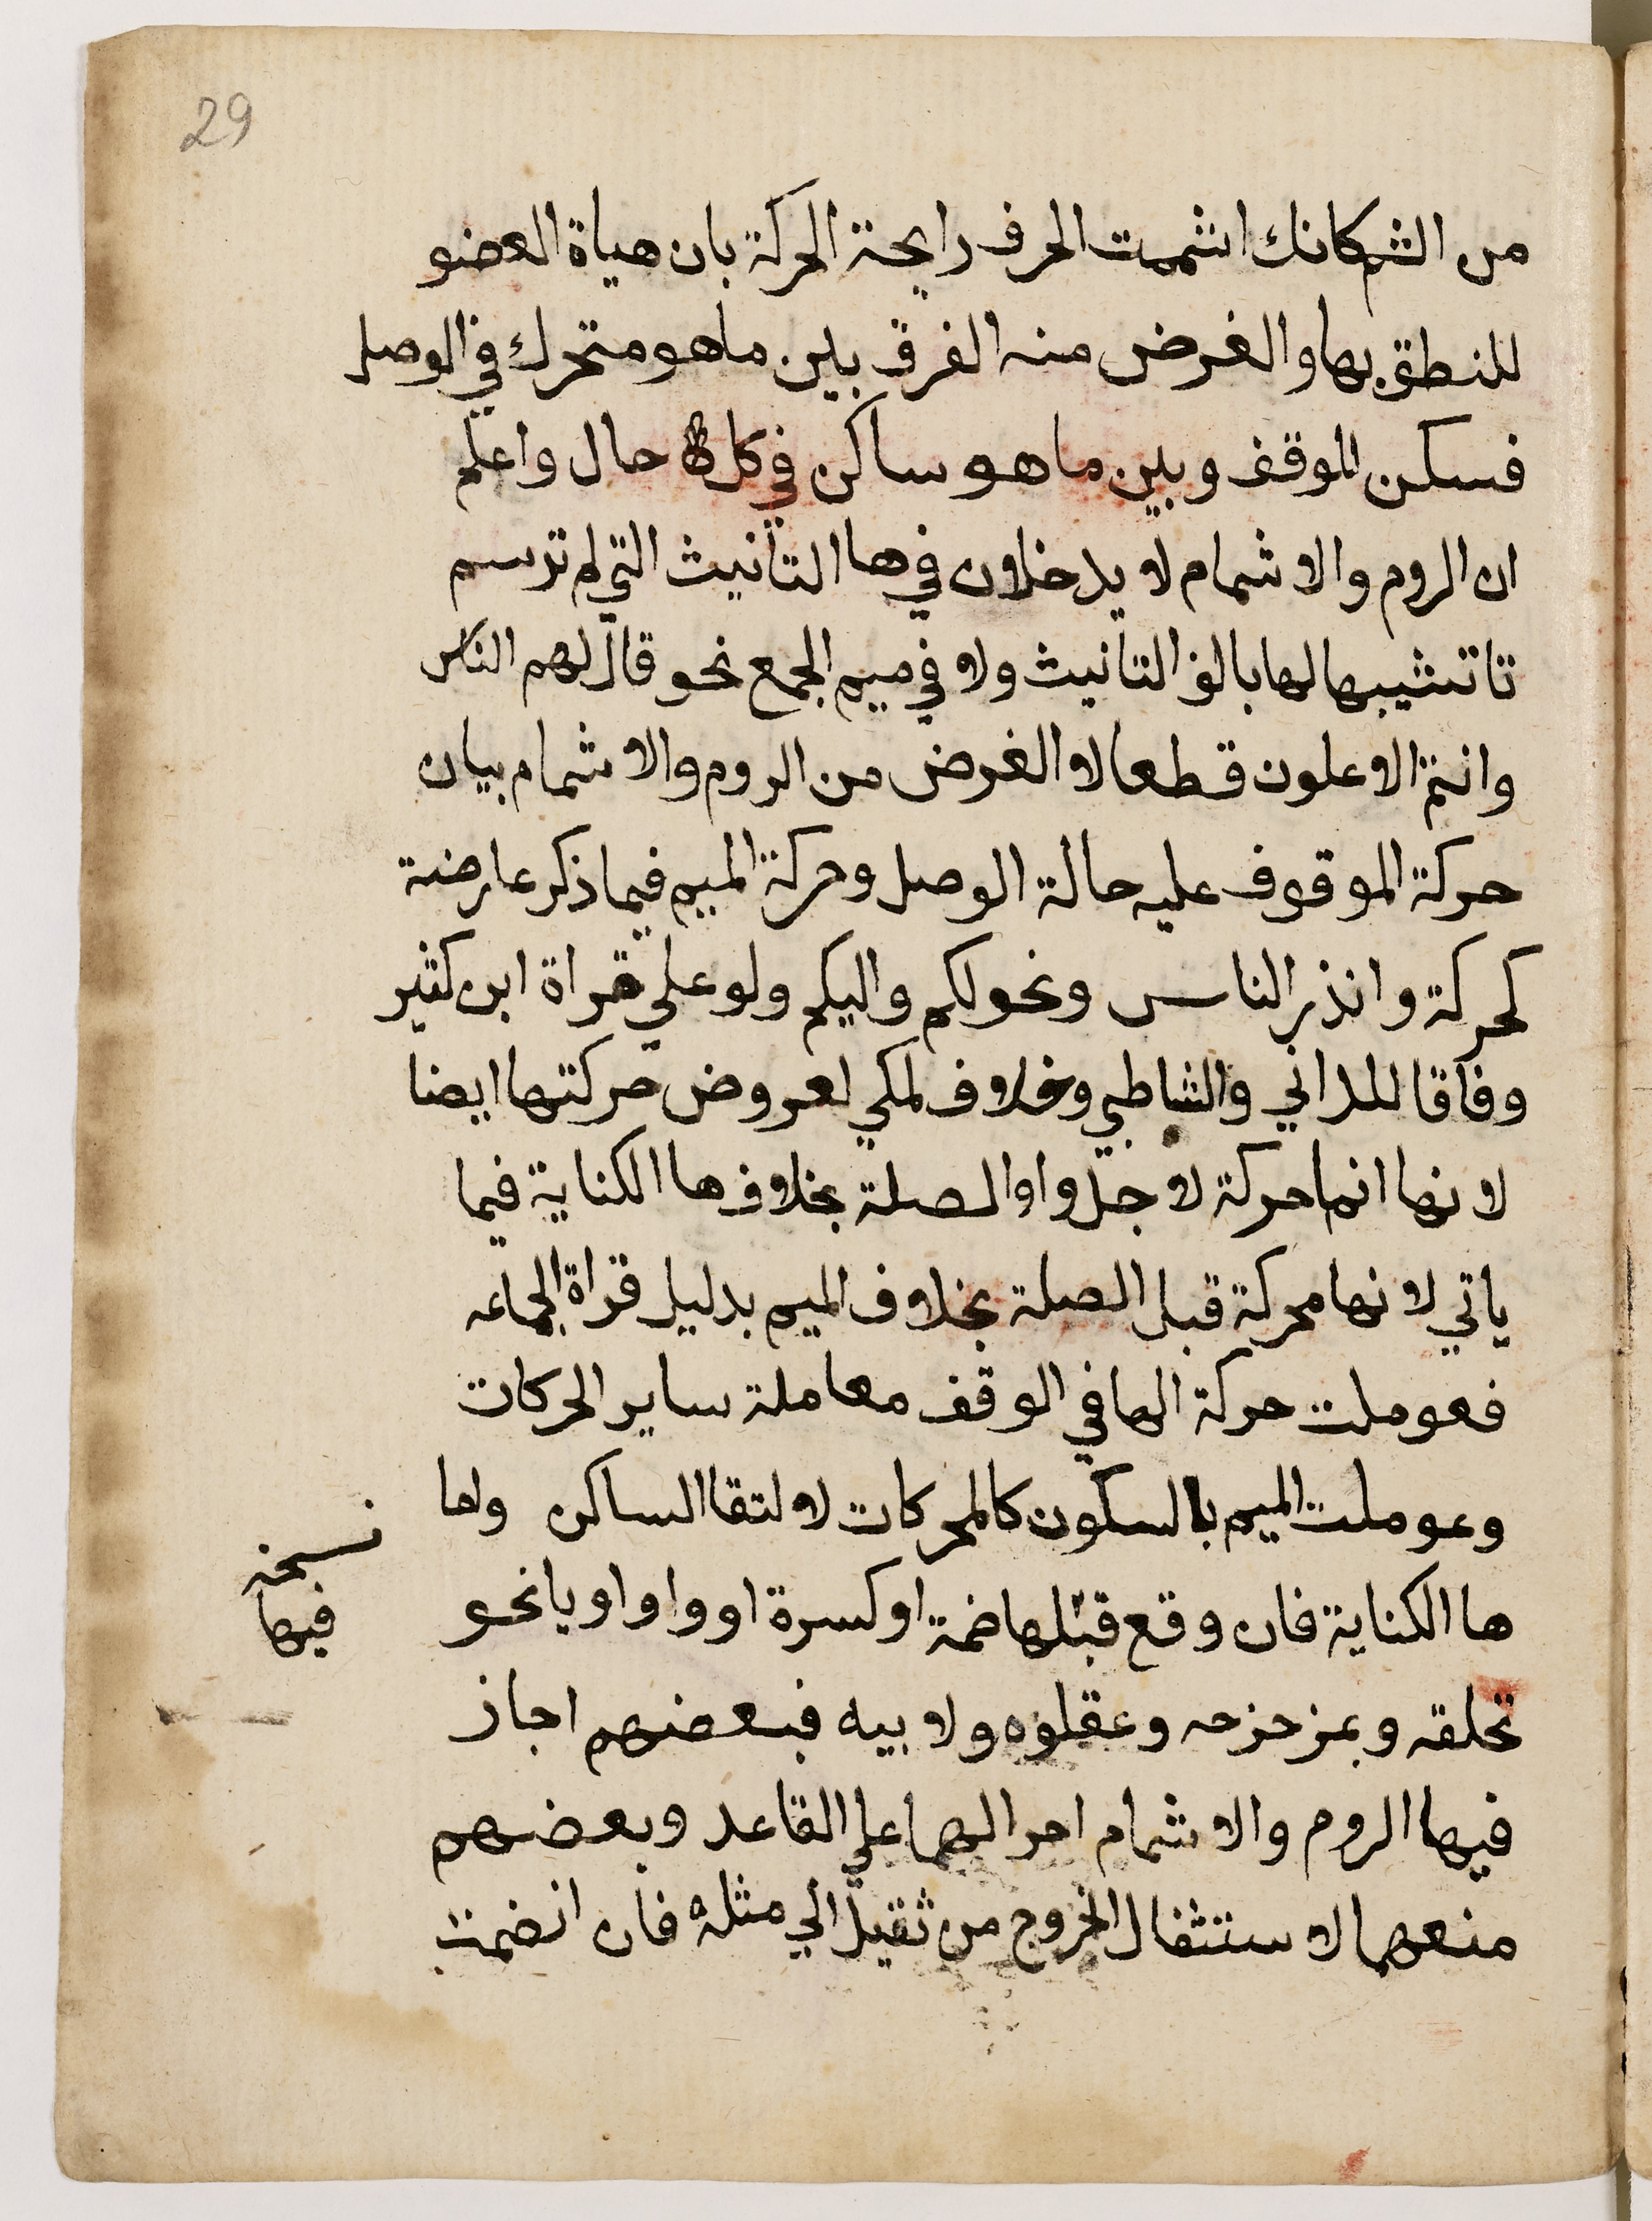 29
من الشم كانك اشممت الحرف رايحة الحركة بان هياة العضو
للنطق بها والغرض منه الفرق بين ما هو متحرك في الوصل
فسكن للوقف وبين ما هو ساكن في كل حال واعلم
ان الروم والاشمام لا يدخلان في ها التانيث التي لم ترسم
تا تشبيها لها بالف التانيث ولا في ميم الجمع نحو قال لهم الناس
وانتم الاعلون قطعا لا الغرض من الروم والاشمام بيان
حركة الموقوف عليه حالة الوصل وحركة الميم فيما ذكر عارضة
كحركة وانذر الناس ونحو لكم واليكم ولو علي قراة ابن كثير
وفاقا للداني والشاطبي وخلاف لمكي لعروض حركتها ايضا
لانها انما حركة لاجل واو الصلة بخلاف ها الكناية فيما
ياتي لانها محركة قبل الصلة بخلاف الميم بدليل قراة الجماعه
فعوملت حركة الها في الوقف معاملة ساير الحركات
وعوملت الميم بالسكون كالمحركات لالتقا الساكن ولها
ها الكناية فان وقع قبلها ضمة او كسرة او واو او يا نحو
نسخه
فيها
تخلقه وبمزحزحه وعقلوه ولابيه فبعضهم اجاز
فيها الروم والاشمام اجرا لهما علي القاعد وبعضهم
منعهما لاستثقال الخروج من ثقيل الي مثله فان انضمت